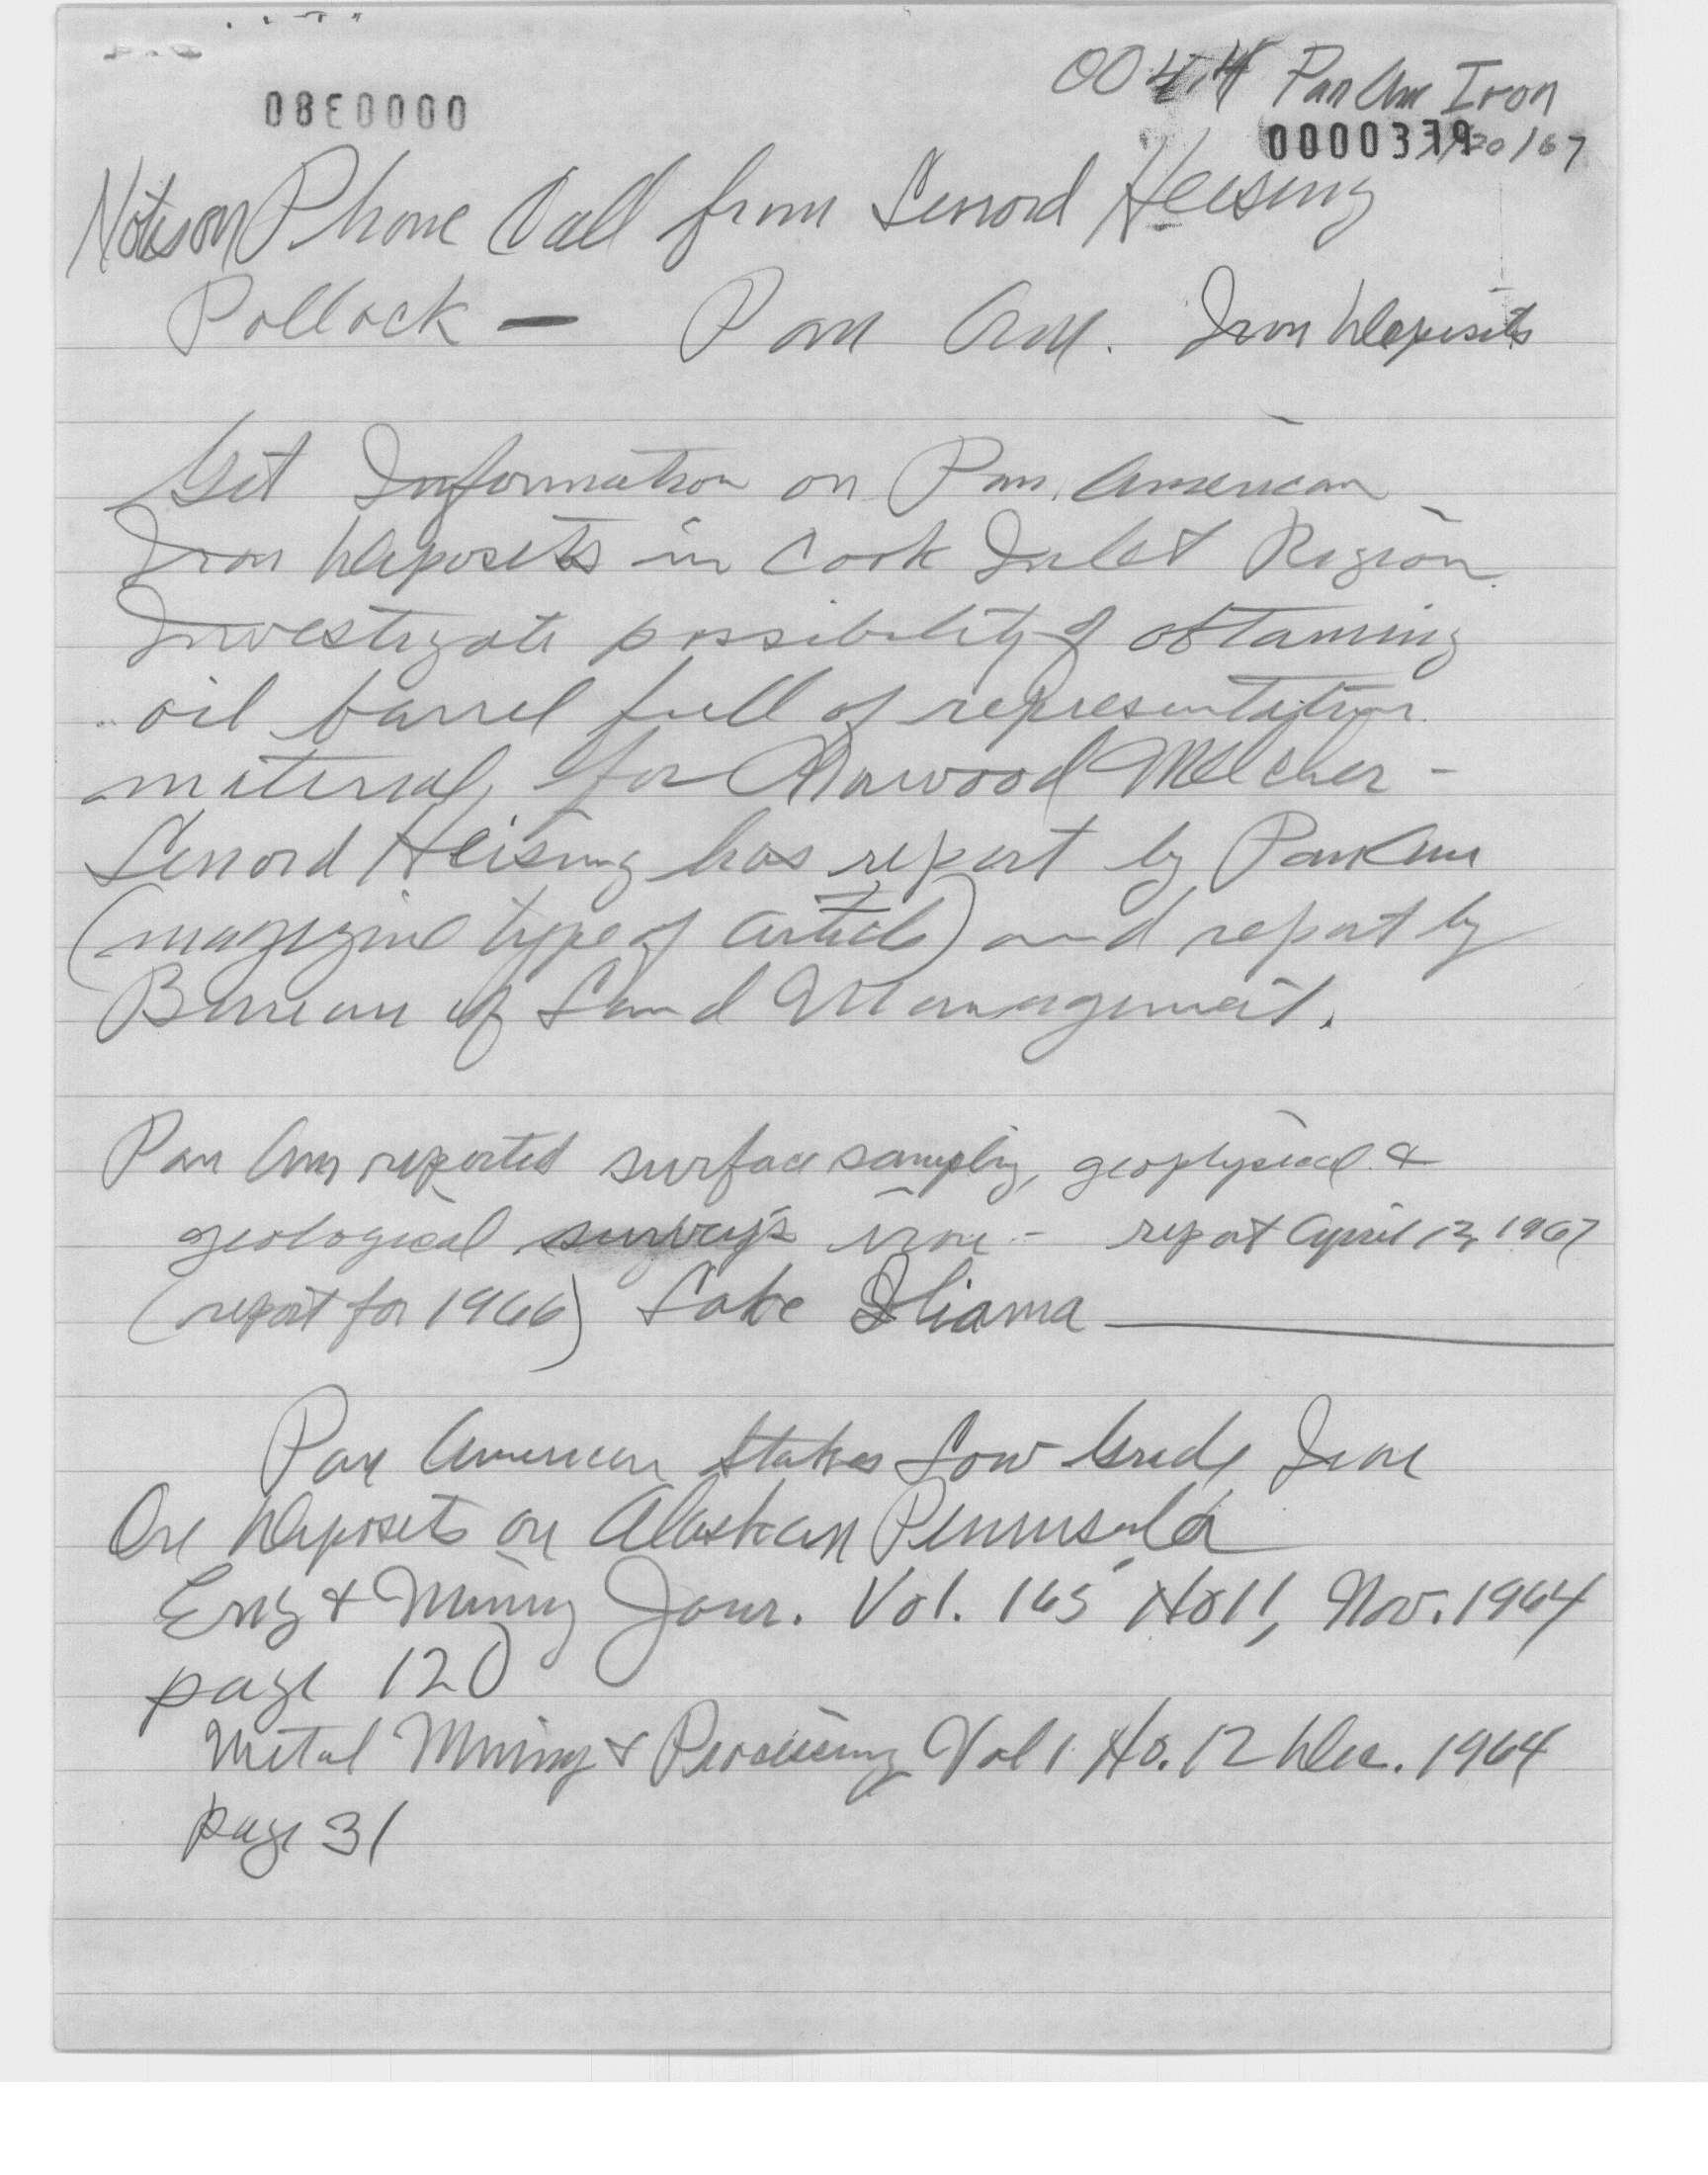 0044 Pan Am Iron
0000380
0000379
/20/67
Notes on Phone Call from Lennord Heising
Pollock — Pan Am. Iron Deposits
Get Information on Pan American
Iron Deposits in Cook Inlet Region.
Investigate possibility of obtaining
oil barrel full of representation
material, for Norwood Melcher -
Lennord Heising has report by Pan Am
(magizine type of article) and report by
Bureau of Land Management.
Pan Am reported surface sampling, geophysical &
geological surveys iron - report April 12, 1967
(report for 1966) Lake Iliama
Pan American Stakes Low Grade Iron
Ore Deposits on Alaskan Peninsula
Eng & Mining Jour. Vol. 165 No 11, Nov. 1964
page 120
Metal Mining & Processing Vol 1 No. 12 Dec. 1964
page 31